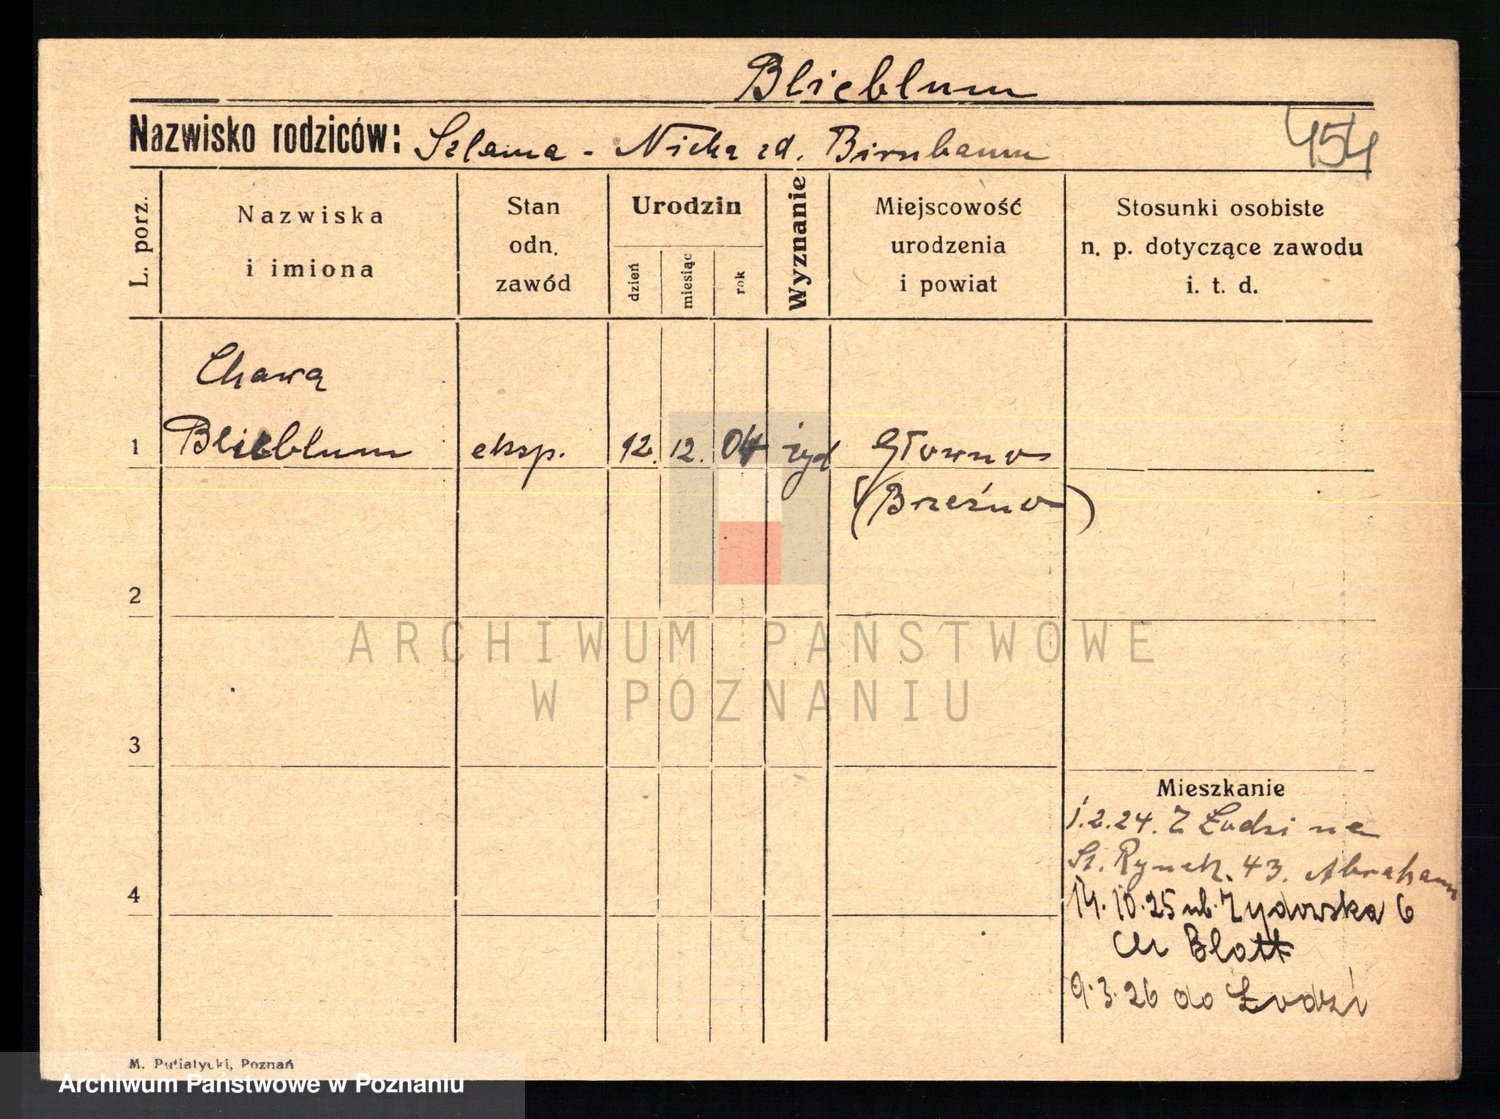 Blieblum
Nazwisko rodziców: Szlama - Nicha zd. Birnbaum
454
L. porz.
Nazwiska
i imiona
Stan
odn.
zawód
Urodzin
dzień
miesiąc
rok
Wyznanie
Miejscowość
urodzenia
i powiat
Stosunki osobiste
n. p. dotyczące zawodu
i. t. d.
Chawa
1 Blieblum eksp. 12. 12. 04 żyd Głowno
(Brzeźno)
2
ARCHIWUM PAŃSTWOWE
W POZNANIU
3
Mieszkanie
1.2.24. Z Łodzi na
St. Rynek. 43. Abraham
4
14.10.25 ul. Żydowska 6
Blatt
9.3.26 do Łodzi
M. Putiatycki, Poznań
Archiwum Państwowe w Poznaniu